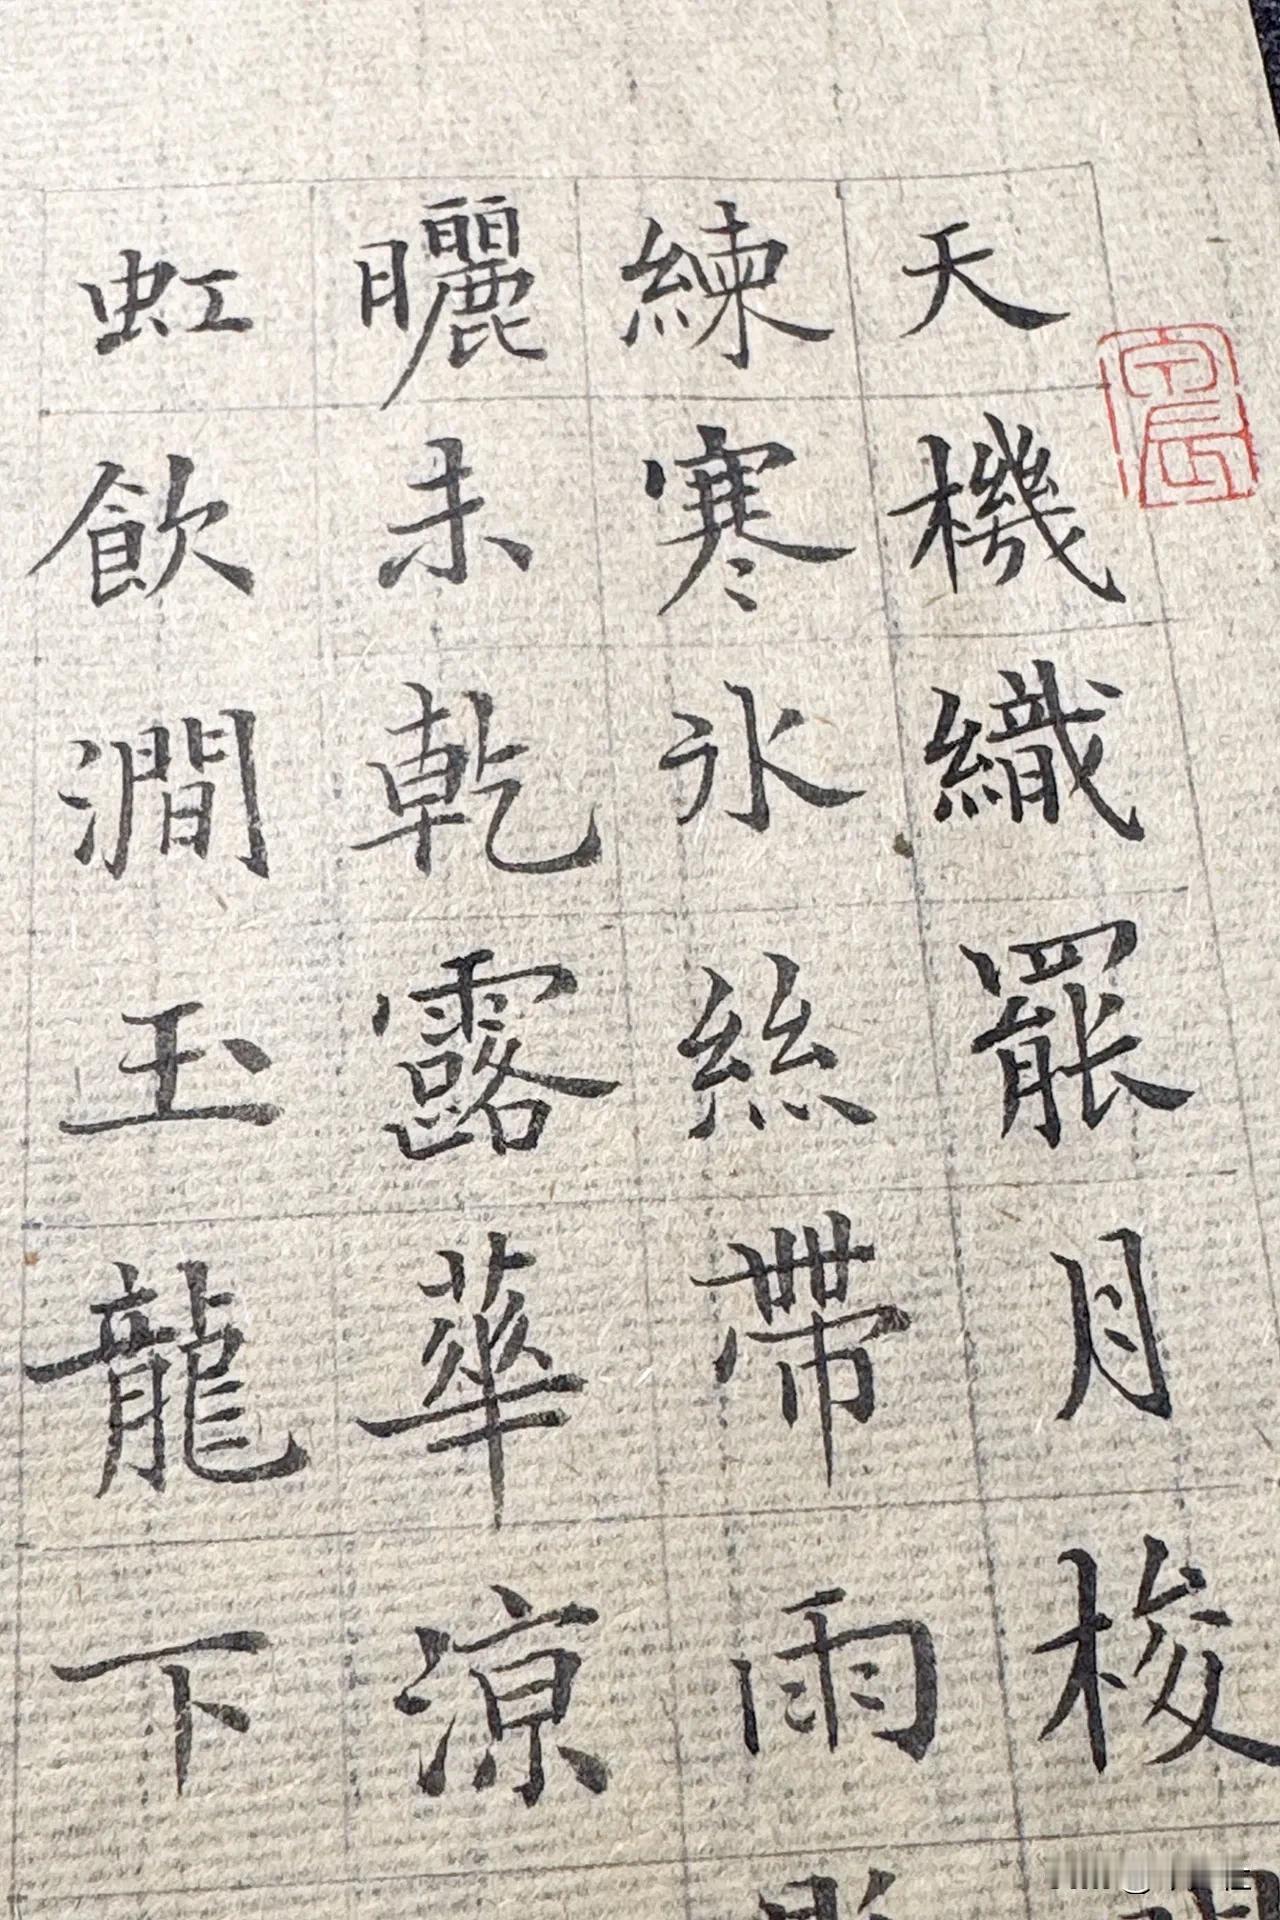 天機織罷月梭
練寒氷絲帶雨
曬未乾露華涼
虹飲澗玉龍下